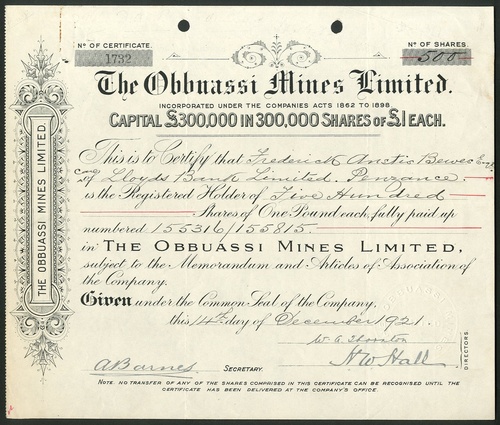 No OF CERTIFICATE.
1732
No OF SHARES.
500
The Obbuassi Mines Limited.
INCORPORATED UNDER THE COMPANIES ACTS 1862 TO 1898.
CAPITAL £300,000 IN 300,000 SHARES OF £1 EACH.
THE OBBUASSI MINES LIMITED.
This is to Certify that Frederick Anstis Bewes Esq.
of Lloyds Bank Limited. Penzance.
is the Registered Holder of Five Hundred
Shares of One Pound each, fully paid up
numbered 155316/155815.
in THE OBBUASSI MINES LIMITED,
subject to the Memorandum and Articles of Association of
the Company.
Given under the Common Seal of the Company,
this 14th day of December 1921.
DIRECTORS.
A Barnes SECRETARY.
NOTE. NO TRANSFER OF ANY OF THE SHARES COMPRISED IN THIS CERTIFICATE CAN BE RECOGNISED UNTIL THE
CERTIFICATE HAS BEEN DELIVERED AT THE COMPANY'S OFFICE.